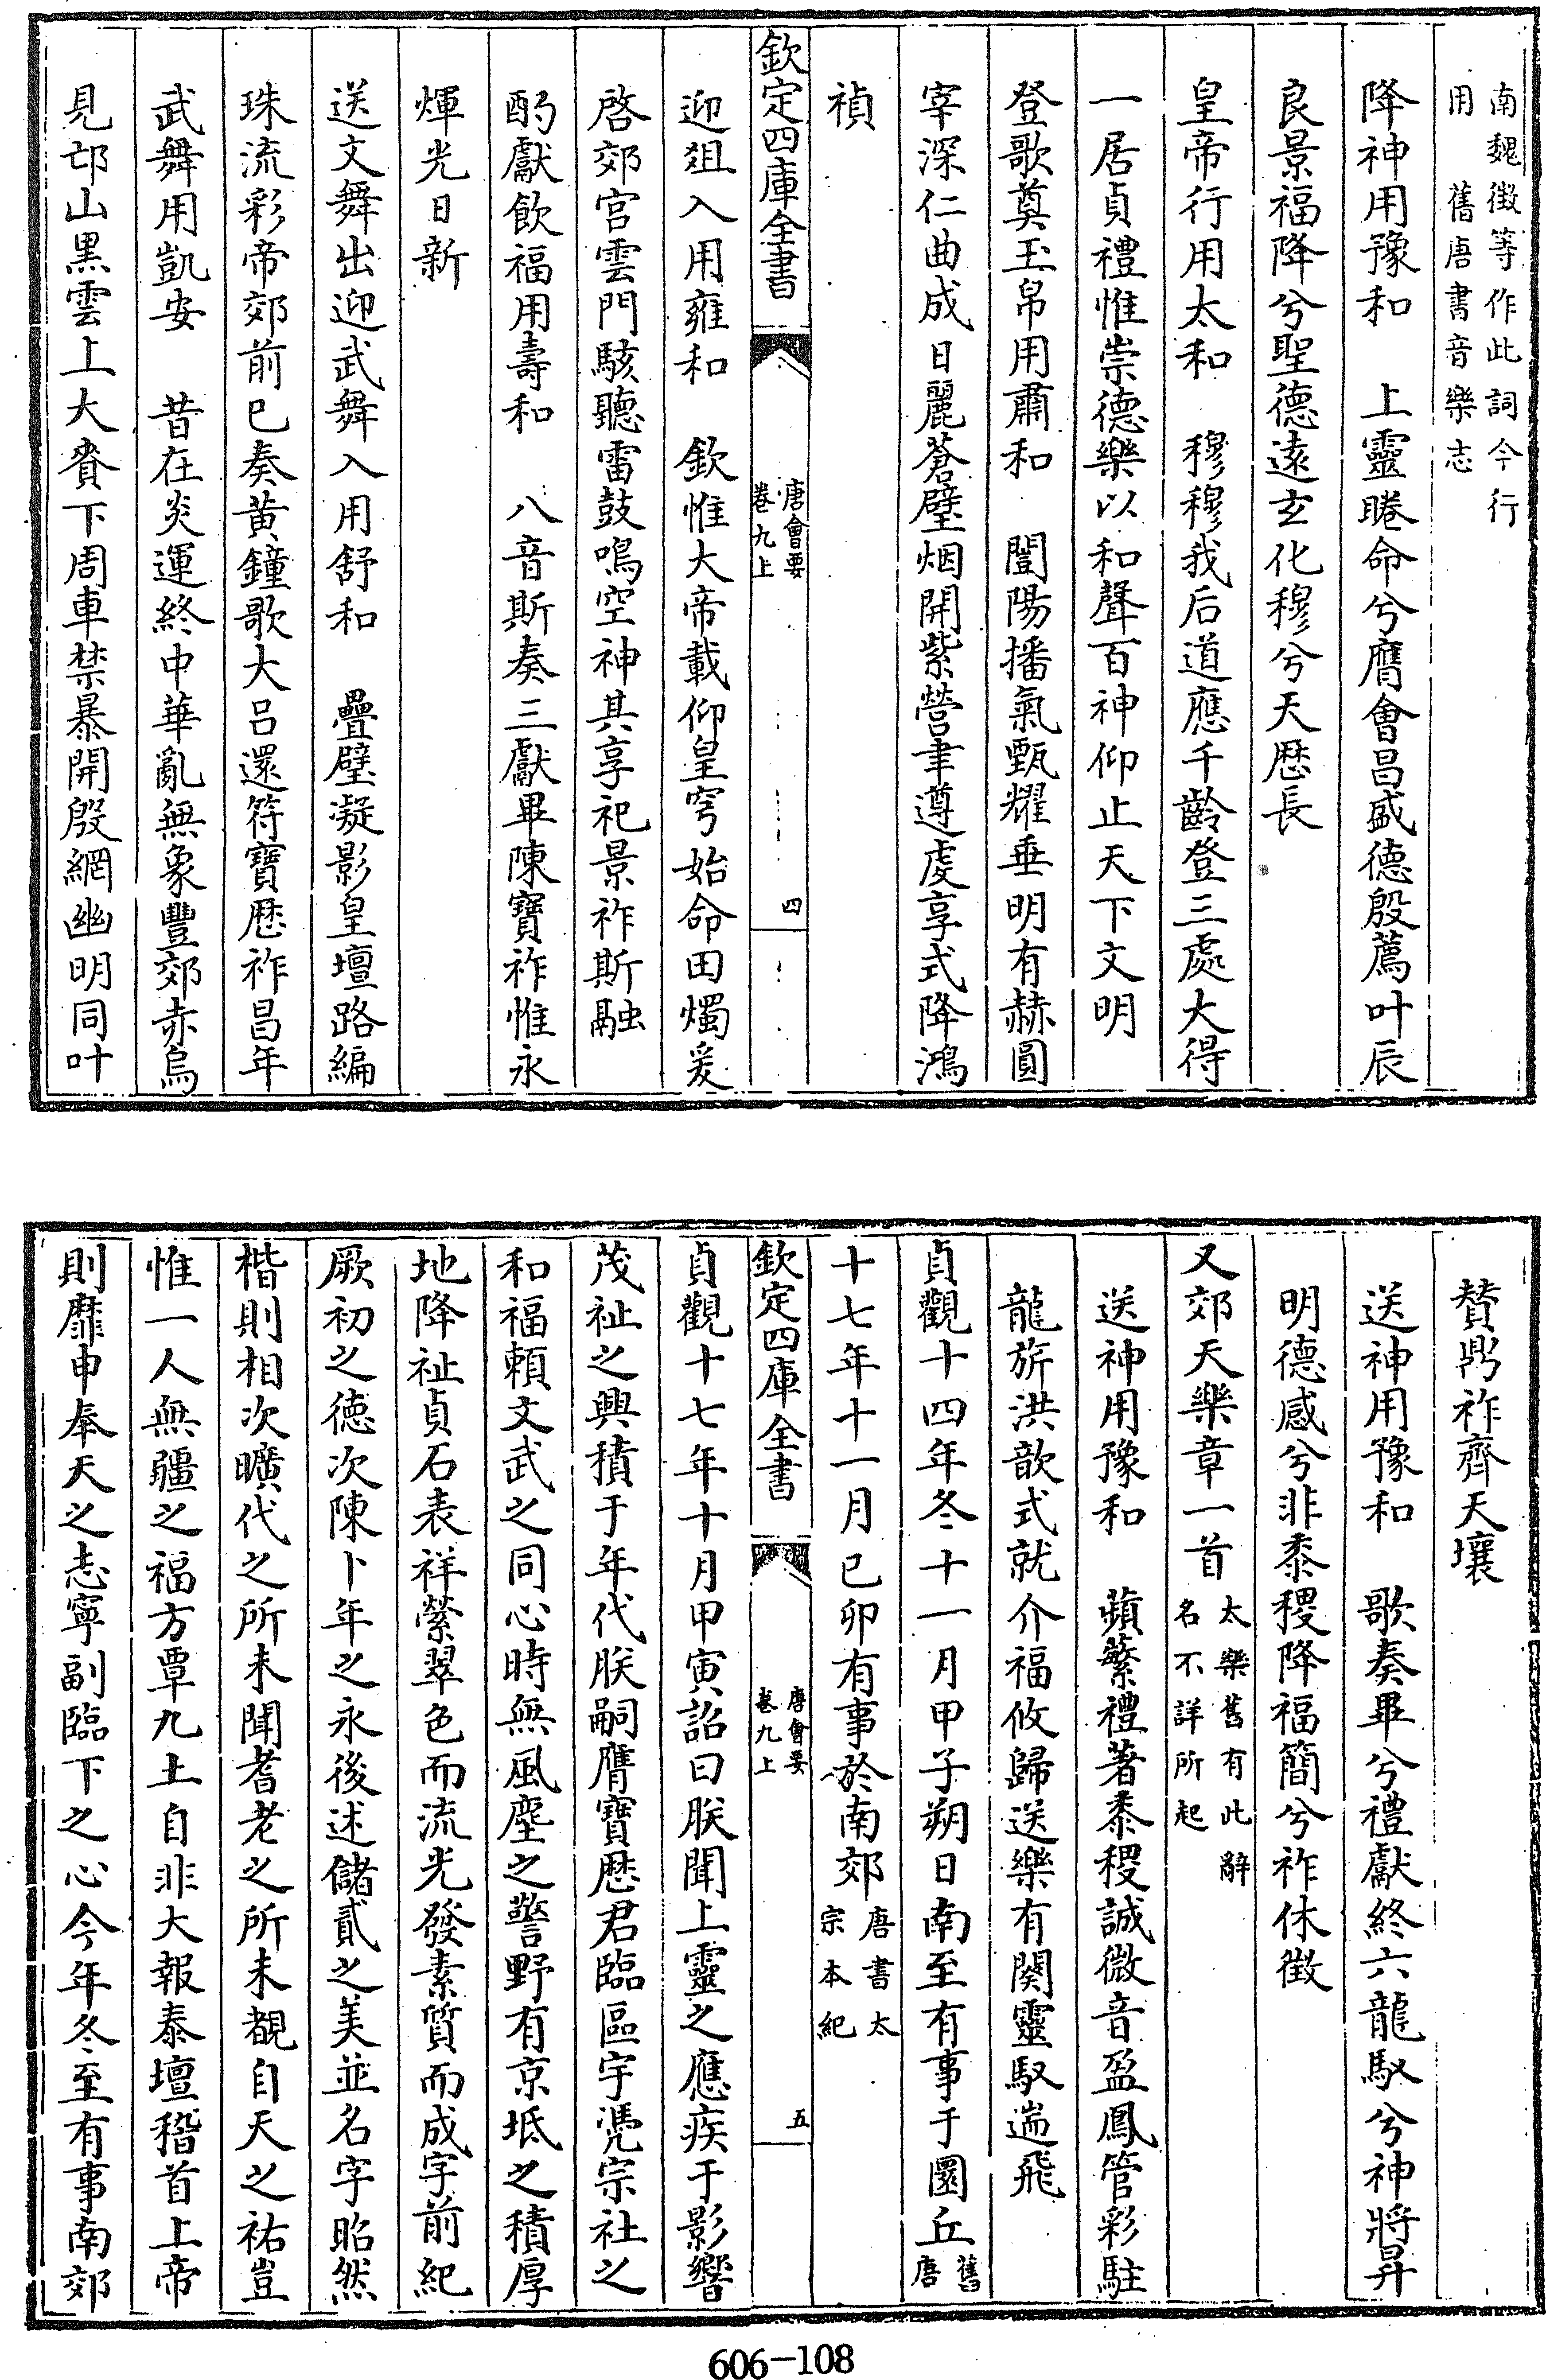 南魏徵等作此詞今行
用　舊唐書音樂志
降神用豫和　上靈睠命兮膺會昌盛德殷薦叶辰
良景福降兮聖德遠玄化穆兮天歷長
皇帝行用太和　穆穆我后道應千齡登三處大得
一居貞禮惟崇德樂以和聲百神仰止天下文明
登歌奠玉帛用肅和　闓陽播氣甄耀垂明有赫圓
宰深仁曲成日麗蒼璧烟開紫營聿遵虔享式降鴻
禎
欽定四庫全書
唐會要
卷九上
四
迎俎入用雍和　欽惟大帝載仰皇穹始命田燭爰
啓郊宫雲門駭聽雷鼓鳴空神其享祀景祚斯融
酌獻飲福用壽和　八音斯奏三獻畢陳寶祚惟永
煇光日新
送文舞出迎武舞入用舒和　疊璧凝影皇壇路編
珠流彩帝郊前已奏黄鐘歌大吕還符寶歷祚昌年
武舞用凱安　昔在炎運終中華亂無象酆郊赤烏
見邙山黑雲上大賚下周車禁暴開殷網幽明同叶
贊鼎祚齊天壤
送神用豫和　歌奏畢兮禮獻終六龍馭兮神將昇
明德感兮非黍稷降福簡兮祚休徴
又郊天樂章一首
太樂舊有此辭
名不詳所起
送神用豫和　蘋蘩禮著黍稷誠微音盈鳳管彩駐
龍旂洪歆式就介福攸歸送樂有闋靈馭遄飛
貞觀十四年冬十一月甲子朔日南至有事于圜丘
舊
唐
十七年十一月已卯有事於南郊
唐書太
宗本紀
欽定四庫全書
唐會要
卷九上
五
貞觀十七年十月甲寅詔曰朕聞上靈之應疾于影響
茂祉之興積于年代朕嗣膺寶歷君臨區宇憑宗社之
和福賴文武之同心時無風塵之警野有京坻之積厚
地降祉貞石表祥縈翠色而流光發素質而成字前紀
厥初之德次陳卜年之永後述儲貳之美並名字昭然
楷則相次曠代之所未聞耆老之所未覩自天之祐豈
惟一人無疆之福方覃九土自非大報泰壇稽首上帝
則靡申奉天之志寧副臨下之心今年冬至有事南郊
606-108